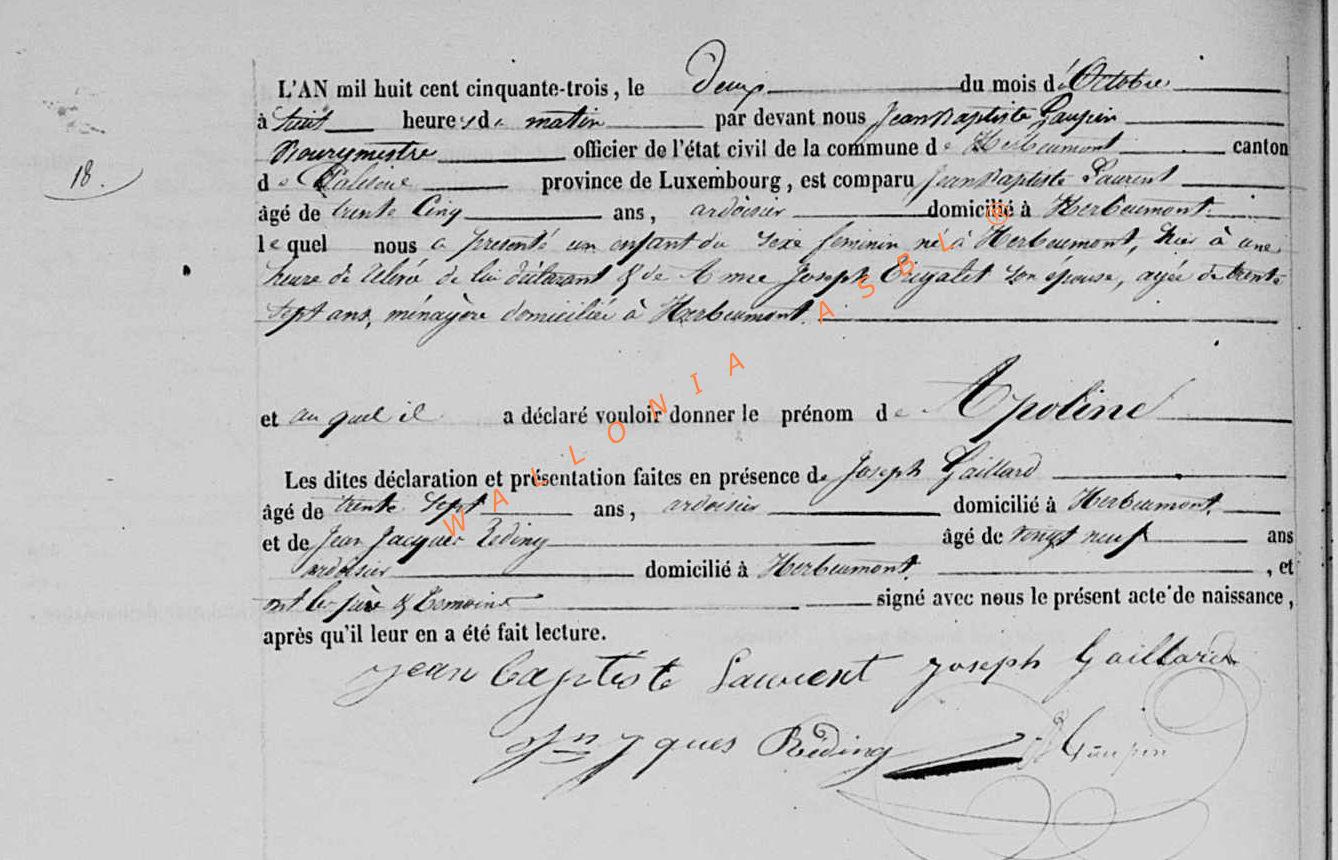 L'AN mil huit cent cinquante-trois, le Deux du mois d'Octobre
à huit heures du matin par devant nous Jean Baptiste Gaupin
Bourgmestre officier de l'état civil de la commune de Herbeumont canton
de Paliseul province de Luxembourg, est comparu Jean Baptiste Laurent
18.
âgé de trente Cinq ans, ardoisier domicilié à Herbeumont.
lequel nous a présenté un enfant du sexe feminin né à Herbeumont, hier à une
heure de de lui déclarant & de Anne Joseph son épouse, agée de trente
sept ans, ménagère domiciliée à Herbeumont.
et au quel il a déclaré vouloir donner le prénom de Apoline
Les dites déclaration et présentation faites en présence de Joseph Gaillard
âgé de trente sept ans, ardoisier domicilié à Herbeumont.
et de Jean Jacques Réding âgé de vingt neuf ans
ardoisier domicilié à Herbeumont. , et
ont les père & témoins signé avec nous le présent acte de naissance,
après qu'il leur en a été fait lecture.
jean baptiste Laurent joseph Gaillard
Jn jques Réding Gaupin
WALLONIA ASBL ®